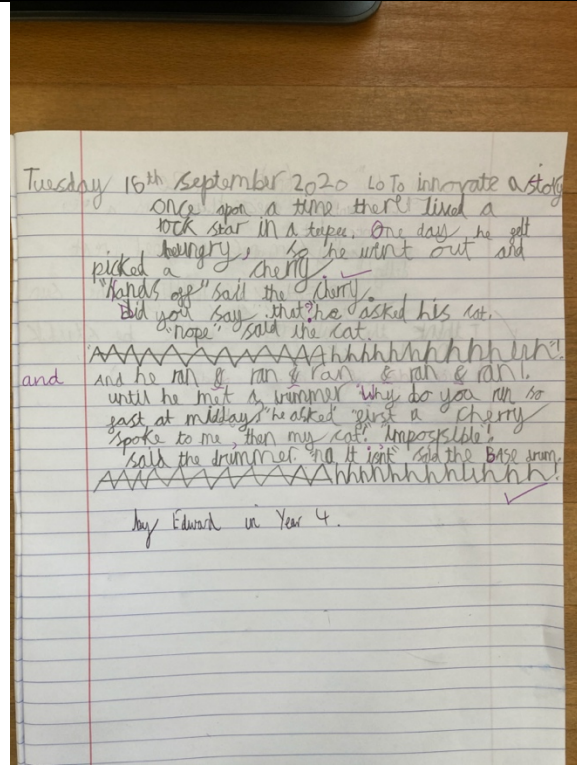 Tuesday 16th September 2020 LO To innovate a story
once upon a time there lived a
rock star in a teepee. One day he got
hungry, so he went out and
picked a cherry.
"Hands off" said the cherry.
Did you say that? he asked his cat.
"nope" said the cat.
"AAAAAAAAAAAAAAAhhhhhhhhhhhhh"!
and And he ran & ran & ran & ran & ran!.
until he met a drummer "Why do you run so
fast at midday" he asked "first a cherry
spoke to me, then my cat." impossible"!
said the drummer. "no it isnt" said the BASe drum.
AAAAAAAAAAAAAAAhhhhhhhhhhhhh!
by Edward in Year 4.